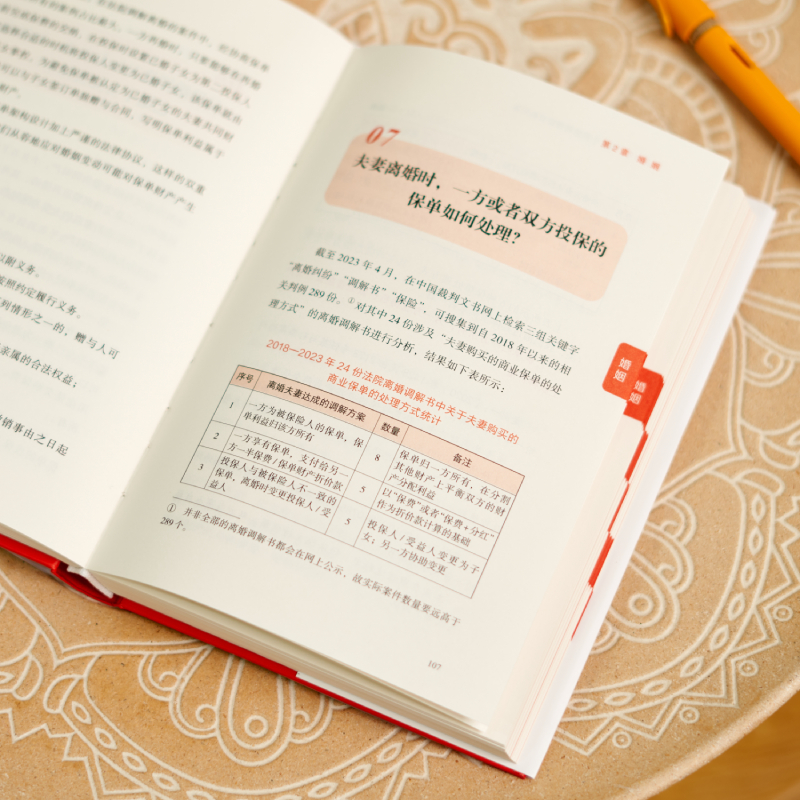 财产。
以附义务。
按照约定履行义务。
列情形之一的，赠与人可
亲属的合法权益；
销事由之日起
第2章 婚姻
07
夫妻离婚时，一方或者双方投保的
保单如何处理？
截至 2023 年 4 月，在中国裁判文书网上检索三组关键字
“离婚纠纷”“调解书”“保险”，可搜集到自 2018 年以来的相
关判例 289 份。①对其中 24 份涉及“夫妻购买的商业保单的处
理方式”的离婚调解书进行分析，结果如下表所示：
2018—2023 年 24 份法院离婚调解书中关于夫妻购买的
商业保单的处理方式统计
序号 离婚夫妻达成的调解方案 数量 备注
1 一方为被保险人的保单，保
单利益归该方所有
8 保单归一方所有，在分割
其他财产上平衡双方的财
产分配利益
2 一方享有保单，支付给另一
方一半保费/保单财产折价款
5 以“保费”或者“保费+分红”
作为折价款计算的基础
3 投保人与被保险人不一致的
保单，离婚时变更投保人/受
益人
5 投保人/受益人变更为子
女；另一方协助变更
① 并非全部的离婚调解书都会在网上公示，故实际案件数量要远高于
289 个。
107
婚姻
婚姻